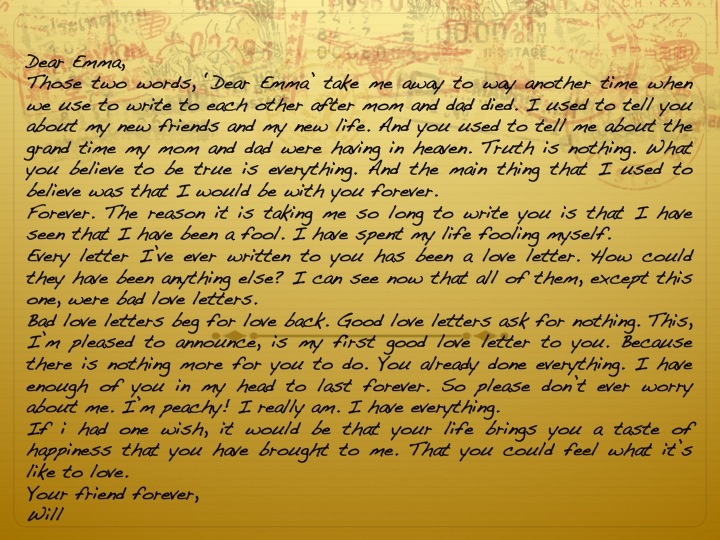 Dear Emma,
Those two words, 'Dear Emma' take me away to way another time when
we use to write to each other after mom and dad died. I used to tell you
about my new friends and my new life. And you used to tell me about the
grand time my mom and dad were having in heaven. Truth is nothing. What
you believe to be true is everything. And the main thing that I used to
believe was that I would be with you forever.
Forever. The reason it is taking me so long to write you is that I have
seen that I have been a fool. I have spent my life fooling myself.
Every letter I've ever written to you has been a love letter. How could
they have been anything else? I can see now that all of them, except this
one, were bad love letters.
Bad love letters beg for love back. Good love letters ask for nothing. This,
I'm pleased to announce, is my first good love letter to you. Because
there is nothing more for you to do. You already done everything. I have
enough of you in my head to last forever. So please don't ever worry
about me. I'm peachy! I really am. I have everything.
If i had one wish, it would be that your life brings you a taste of
happiness that you have brought to me. That you could feel what it's
like to love.
Your friend forever,
Will